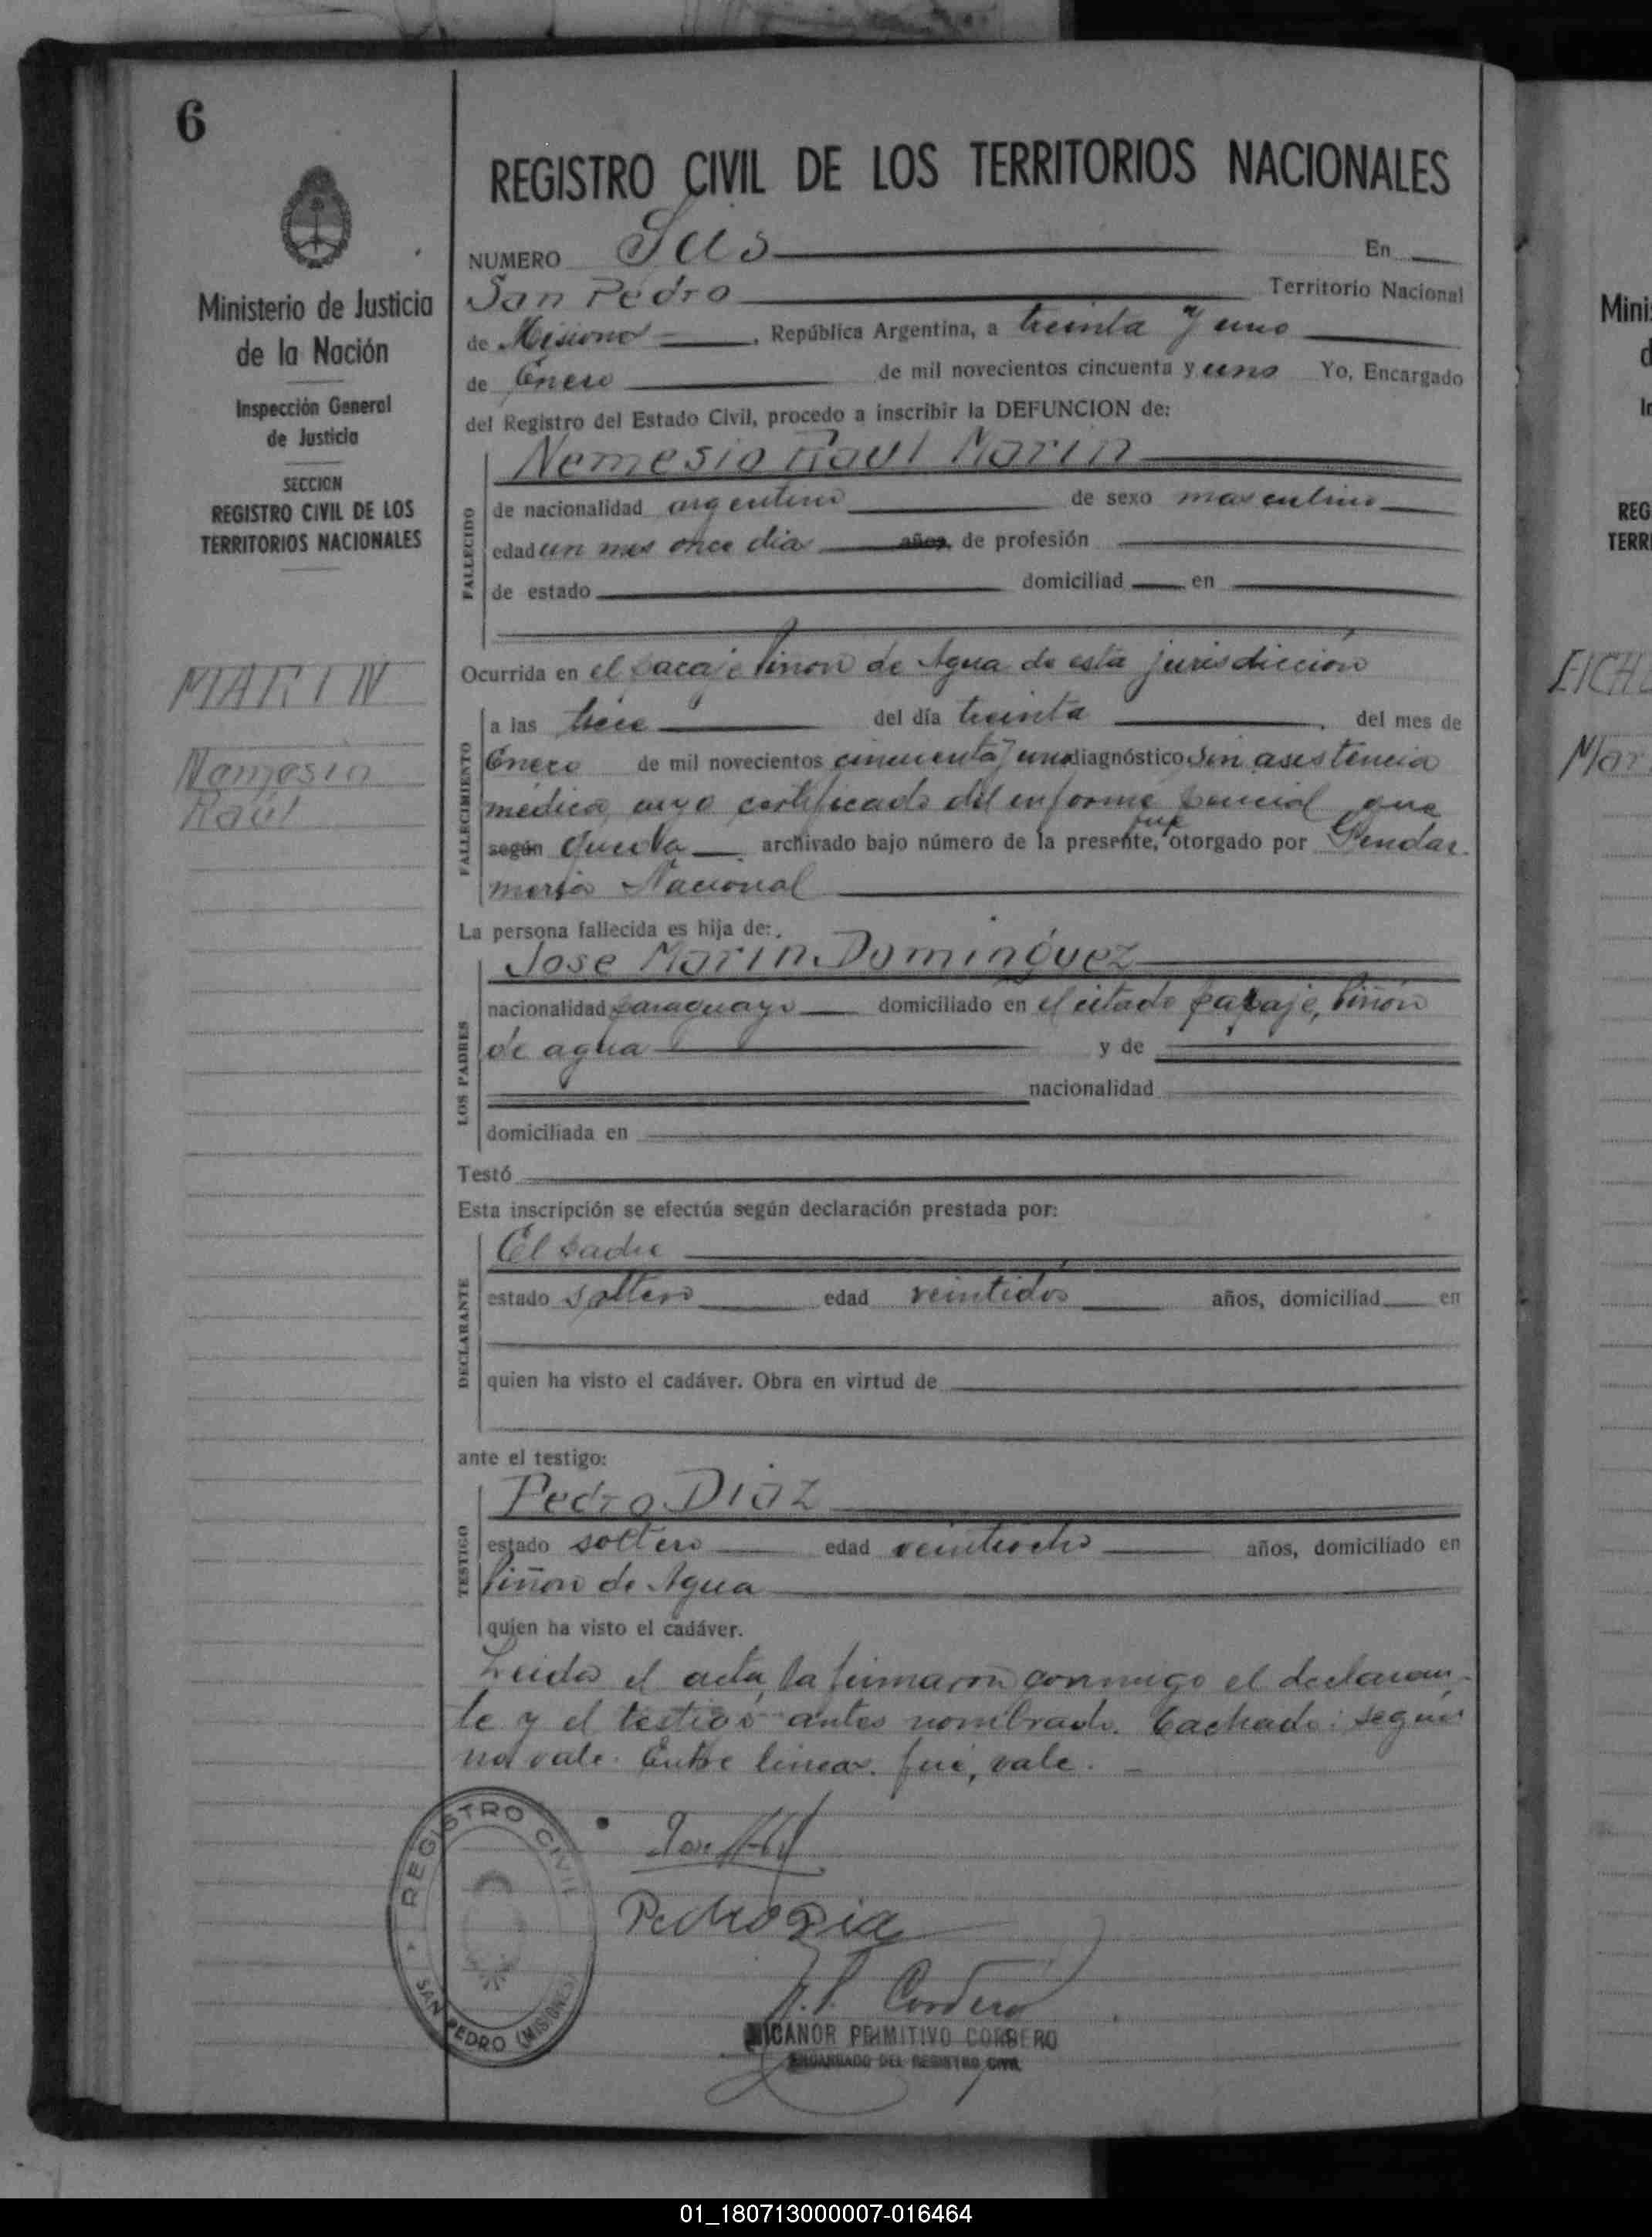 6
REGISTRO CIVIL DE LOS TERRITORIOS NACIONALES
NUMERO Seis En
San Pedro Territorio Nacional
de Misiones, República Argentina, a treinta y uno
de Enero de mil novecientos cincuenta y uno Yo, Encargado
del Registro del Estado Civil, procedo a inscribir la DEFUNCION de:
Ministerio de Justicia
de la Nación
Inspección General
de Justicia
SECCION
REGISTRO CIVIL DE LOS
TERRITORIOS NACIONALES
MARIN
Nemesio
Raúl
FALLECIDO
Nemesio Raul Marin
de nacionalidad argentino de sexo masculino
edad un mes once dia años, de profesión
de estado domiciliad en
Ocurrida en el paraje Piñon de Agua de esta jurisdicción
FALLECIMIENTO
a las trece del día treinta, del mes de
Enero de mil novecientos cincuenta y uno diagnóstico Sin asistencia
médica, cuyo certificado del informe que
fué
según queda archivado bajo número de la presente, otorgado por Gendar-
meria Nacional
La persona fallecida es hija de:
LOS PADRES
Jose Marin Dominguez
nacionalidad paraguayo domiciliado en el citado paraje, Piñón
de agua y de
nacionalidad
domiciliada en
Testó
Esta inscripción se efectúa según declaración prestada por:
DECLARANTE
El padre
estado soltero edad veintidos años, domiciliad en
quien ha visto el cadáver. Obra en virtud de
ante el testigo:
TESTIGO
Pedro Diaz
estado soltero edad veintiocho años, domiciliado en
Piñon de Agua
quien ha visto el cadáver.
Leida el acta, la firmaron conmigo el declaran-
te y el testigo antes nombrado. Tachado: según
no vale. Entre lineas. fué, vale.
Pedro Dia
N.P. Cordero
NICANOR PRIMITIVO CORDERO
ENCARGADO DEL REGISTRO CIVIL
REGISTRO CIVIL
SAN PEDRO (MISIONES)
Mini
REG
TERR
Mar
01_180713000007-016464